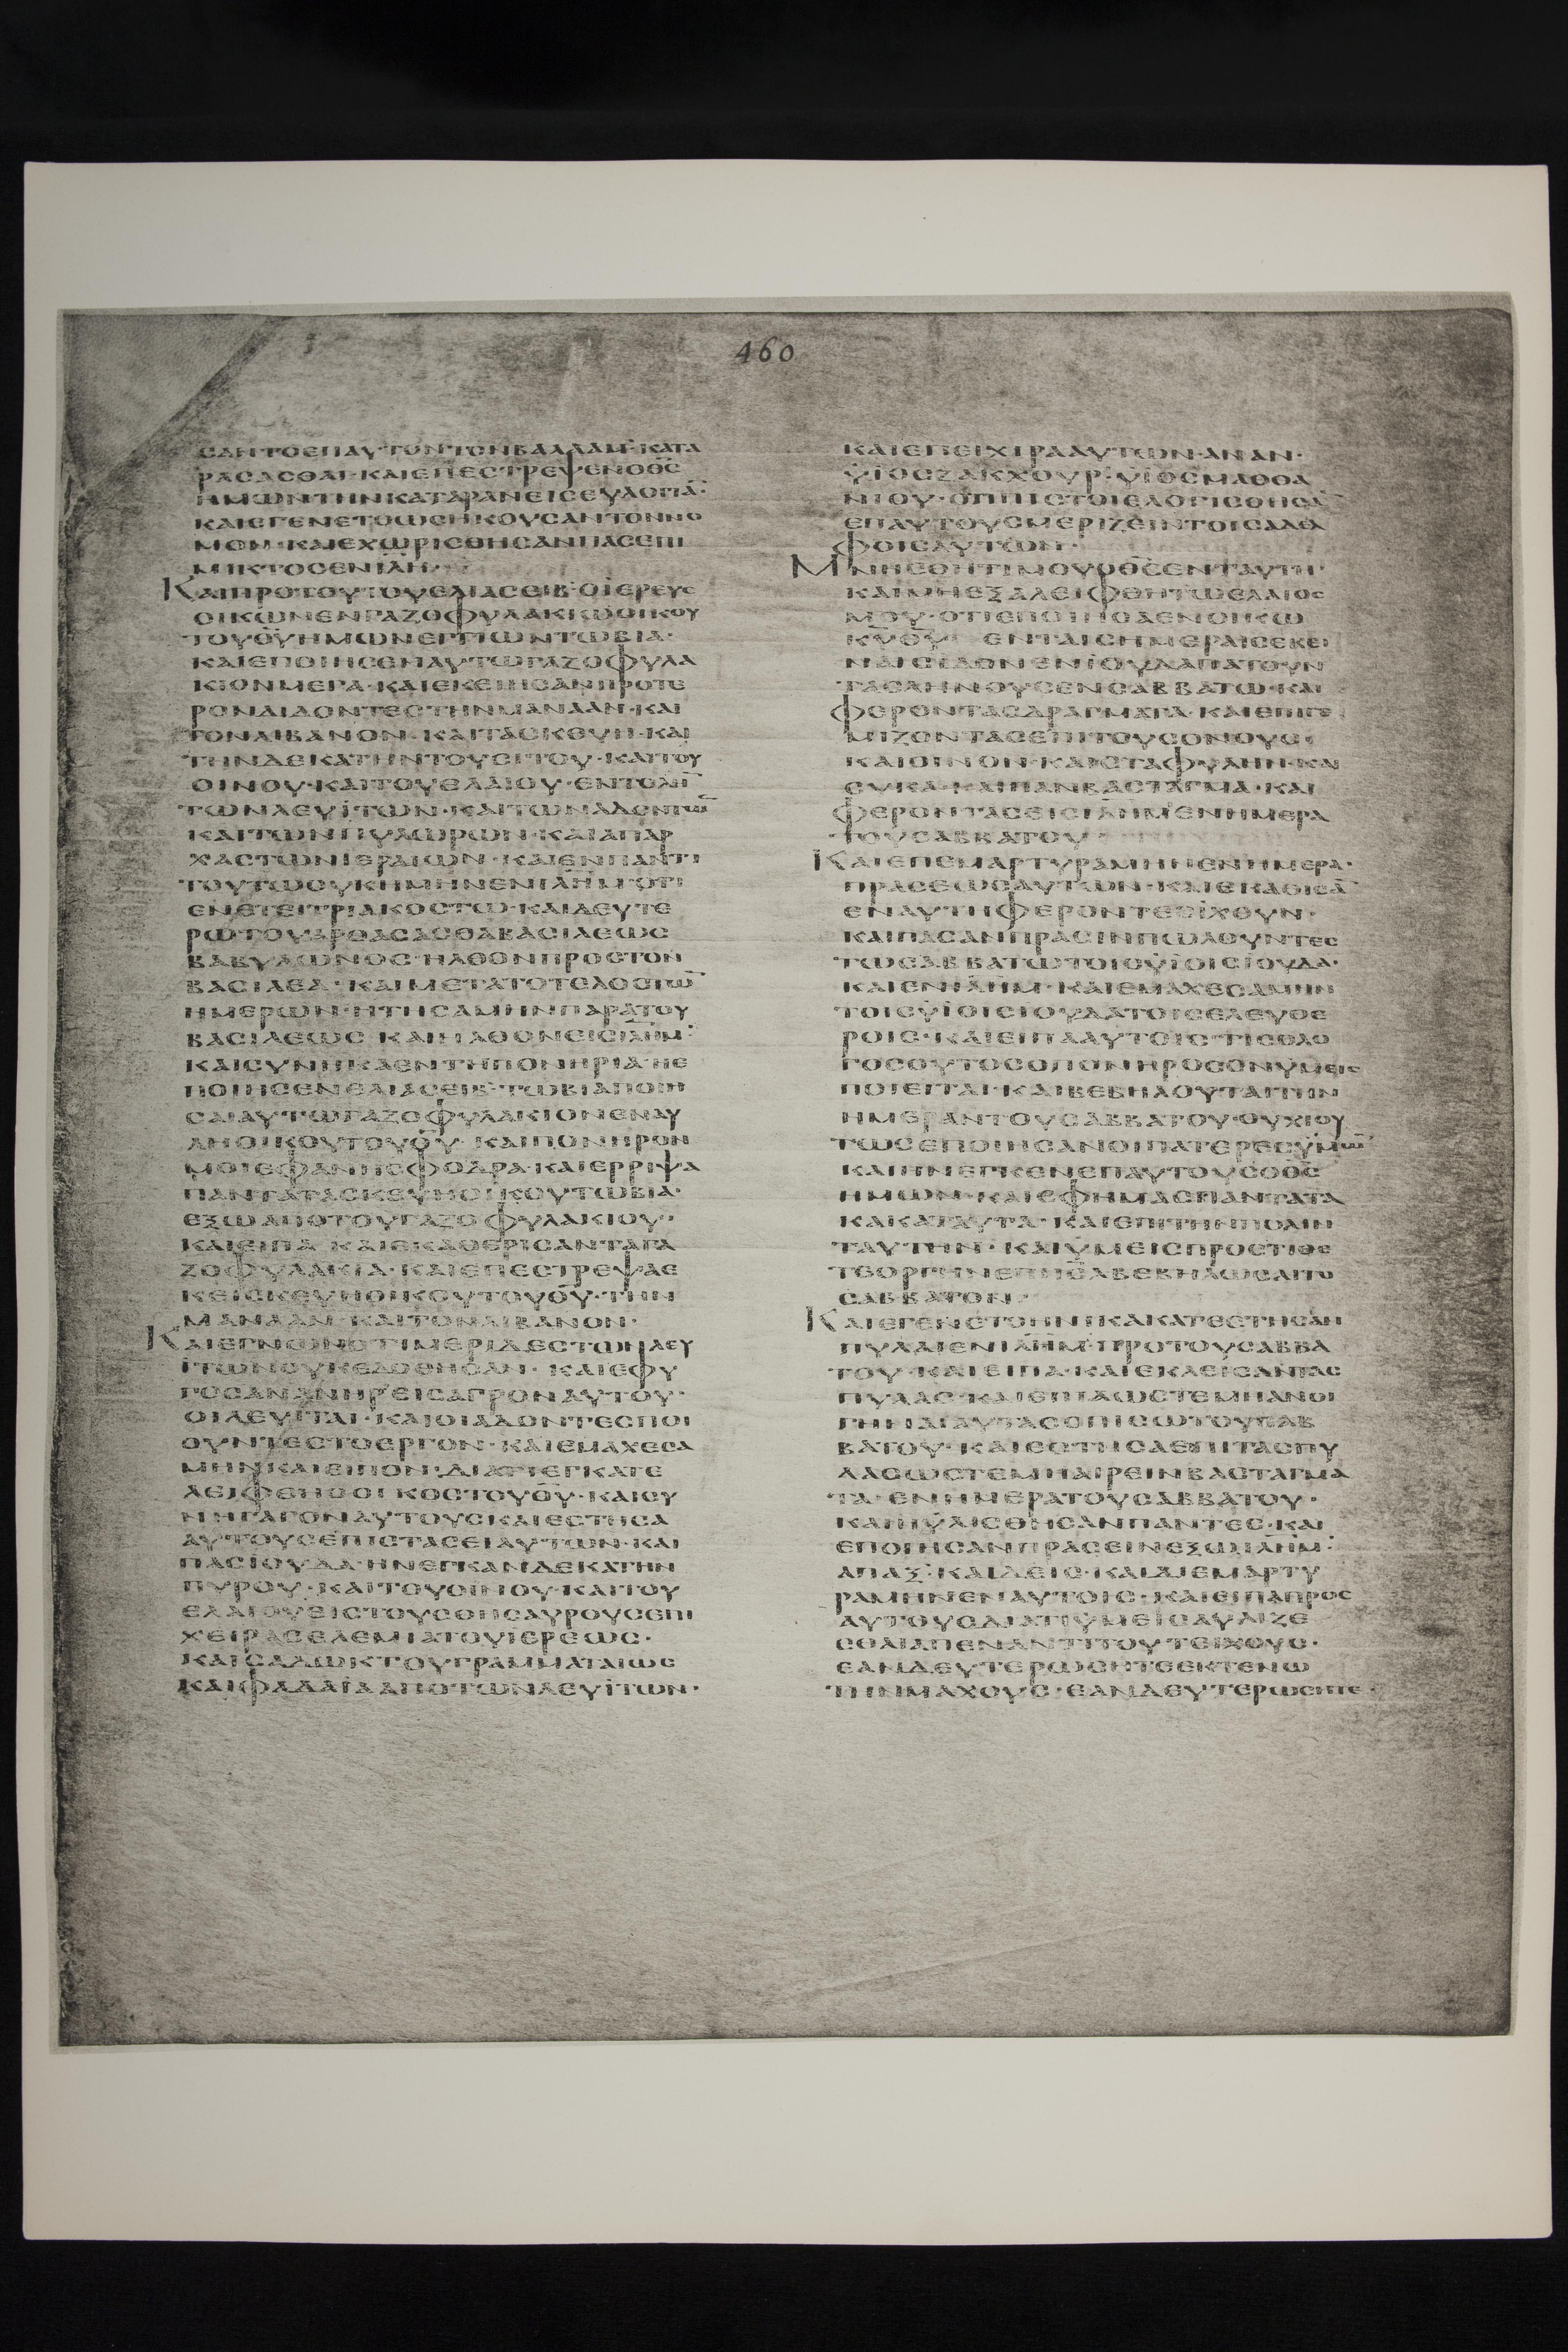 460
ΣΑΝΤΟΕΠΑΥΤΟΝΤΟΝΒΑΛΑΑΜ·ΚΑΤΑ
ΡΑΣΑΣΘΑΙ·ΚΑΙΕΠΕΣΤΡΕΨΕΝΟΘΣ
ΗΜΩΝΤΗΝΚΑΤΑΡΑΝΕΙΣΕΥΛΟΓΙΑ̅·
ΚΑΙΕΓΕΝΕΤΟΩΣΗΚΟΥΣΑΝΤΟΝΝΟ
ΜΟΝ·ΚΑΙΕΧΩΡΙΣΘΗΣΑΝΠΑΣΕΠΙ
ΜΙΚΤΟΣΕΝΙΛΗΛ·
ΚΑΙΠΡΟΤΟΥΤΟΥΕΛΙΑΣΕΙΒ·ΟΙΕΡΕΥΣ
ΟΙΚΩΝΕΝΓΑΖΟΦΥΛΑΚΙΩΟΙΚΟΥ
ΤΟΥΘΥΗΜΩΝΕΓΓΙΩΝΤΩΒΙΑ·
ΚΑΙΕΠΟΙΗΣΕΝΑΥΤΩΓΑΖΟΦΥΛΑ
ΚΙΟΝΜΕΓΑ·ΚΑΙΕΚΕΙΗΣΑΝΠΡΟΤΕ
ΡΟΝΔΙΔΟΝΤΕΣΤΗΝΜΑΝΑΑΝ·ΚΑΙ
ΤΟΝΛΙΒΑΝΟΝ·ΚΑΙΤΑΣΚΕΥΗ·ΚΑΙ
ΤΗΝΔΕΚΑΤΗΝΤΟΥΣΙΤΟΥ·ΚΑΙΤΟΥ
ΟΙΝΟΥ·ΚΑΙΤΟΥΕΛΑΙΟΥ·ΕΝΤΟΛΗ̅
ΤΩΝΛΕΥΙΤΩΝ·ΚΑΙΤΩΝΑΔΟΝΤΩ̅
ΚΑΙΤΩΝΠΥΛΩΡΩΝ·ΚΑΙΑΠΑΡ
ΧΑΣΤΩΝΙΕΡΑΙΩΝ·ΚΑΙΕΝΠΑΝΤΙ
ΤΟΥΤΩΟΥΚΗΜΗΝΕΝΙΛΗΜ·ΟΤΙ
ΕΝΕΤΕΙΤΡΙΑΚΟΣΤΩ·ΚΑΙΔΕΥΤΕ
ΡΩΤΟΥΑΡΘΑΣΑΣΘΑΒΑΣΙΛΕΩΣ
ΒΑΒΥΛΩΝΟΣ·ΗΛΘΟΝΠΡΟΣΤΟΝ
ΒΑΣΙΛΕΑ·ΚΑΙΜΕΤΑΤΟΤΕΛΟΣΤΩ̅
ΗΜΕΡΩΝ·ΗΤΗΣΑΜΗΝΠΑΡΑΤΟΥ
ΒΑΣΙΛΕΩΣ ΚΑΙΗΛΘΟΝΕΙΣΙΛΗΜ·
ΚΑΙΣΥΝΗΚΑΕΝΤΗΠΟΝΗΡΙΑ·ΗΕ
ΠΟΙΗΣΕΝΕΛΙΑΣΕΙΒ·ΤΩΒΙΑΠΟΙΗ
ΣΑΙΑΥΤΩΓΑΖΟΦΥΛΑΚΙΟΝΕΝΑΥ
ΛΗΟΙΚΟΥΤΟΥΘΥ·ΚΑΙΠΟΝΗΡΟΝ
ΜΟΙΕΦΑΝΗΣΦΟΔΡΑ·ΚΑΙΕΡΡΙΨΑ
ΠΑΝΤΑΤΑΣΚΕΥΗΟΙΚΟΥΤΩΒΙΑ·
ΕΞΩΑΠΟΤΟΥΓΑΖΟΦΥΛΑΚΙΟΥ·
ΚΑΙΕΙΠΑ ΚΑΙΕΚΑΘΕΡΙΣΑΝΤΑΓΑ
ΖΟΦΥΛΑΚΙΑ·ΚΑΙΕΠΕΣΤΡΕΨΑΕ
ΚΕΙΣΚΕΥΗΟΙΚΟΥΤΟΥΘΥ·ΤΗΝ
ΜΑΝΑΑΝ·ΚΑΙΤΟΝΛΙΒΑΝΟΝ·
ΚΑΙΕΓΝΩΝΟΤΙΜΕΡΙΔΕΣΤΩΝΛΕΥ
ΙΤΩΝΟΥΚΕΔΟΘΗΣΑΝ·ΚΑΙΕΦΥ
ΓΟΣΑΝΑΝΗΡΕΙΣΑΓΡΟΝΑΥΤΟΥ·
ΟΙΛΕΥΙΤΑΙ·ΚΑΙΟΙΑΔΟΝΤΕΣΠΟΙ
ΟΥΝΤΕΣΤΟΕΡΓΟΝ·ΚΑΙΕΜΑΧΕΣΑ
ΜΗΝΚΑΙΕΙΠΟΝ·ΔΙΑΤΙΕΓΚΑΤΕ
ΛΕΙΦΘΗΟΟΙΚΟΣΤΟΥΘΥ·ΚΑΙΣΥ
ΝΗΓΑΓΟΝΑΥΤΟΥΣΚΑΙΕΣΤΗΣΑ
ΑΥΤΟΥΣΕΠΙΣΤΑΣΕΙΑΥΤΩΝ·ΚΑΙ
ΠΑΣΙΟΥΔΑ·ΗΝΕΓΚΑΝΔΕΚΑΤΗΝ
ΠΥΡΟΥ·ΚΑΙΤΟΥΟΙΝΟΥ·ΚΑΙΤΟΥ
ΕΛΑΙΟΥΕΙΣΤΟΥΣΘΗΣΑΥΡΟΥΣΕΠΙ
ΧΕΙΡΑΣΕΛΕΜΙΑΤΟΥΙΕΡΕΩΣ·
ΚΑΙΣΑΔΩΚΤΟΥΓΡΑΜΜΑΤΑΙΩΣ
ΚΑΙΦΑΔΑΙΑΑΠΟΤΩΝΛΕΥΙΤΩΝ·
ΚΑΙΕΠΕΙΧΙΡΑΑΥΤΩΝ·ΑΝΑΝ·
ΥΙΟΣΖΑΚΧΟΥΡ·ΥΙΟΣΜΑΘΘΑ
ΝΙΟΥ·ΟΤΙΠΙΣΤΟΙΕΛΟΓΙΣΘΗΣΑ̅
ΕΠΑΥΤΟΥΣΜΕΡΙΖΕΙΝΤΟΙΣΑΔΕΛ
ΦΟΙΣΑΥΤΩΝ·
ΜΝΗΣΘΗΤΙΜΟΥΟΘΣΕΝΤΑΥΤΗ·
ΚΑΙΜΗΕΞΑΛΕΙΦΘΗΤΩΕΛΑΙΟΣ
ΜΟΥ·ΟΤΙΕΠΟΙΗΣΑΕΝΟΙΚΩ
ΚΥΘΥ ΕΝΤΑΙΣΗΜΕΡΑΙΣΕΚΕΙ
ΝΑΙΣΙΔΟΝΕΝΙΟΥΔΑΠΑΤΟΥΝ
ΤΑΣΛΗΝΟΥΣΕΝΣΑΒΒΑΤΩ·ΚΑΙ
ΦΕΡΟΝΤΑΣΔΡΑΓΜΑΤΑ·ΚΑΙΕΠΙΓΕ
ΜΙΖΟΝΤΑΣΕΠΙΤΟΥΣΟΝΟΥΣ·
ΚΑΙΟΙΝΟΝ·ΚΑΙΣΤΑΦΥΛΗΝ·ΚΑΙ
ΣΥΚΑ·ΚΑΙΠΑΝΒΑΣΤΑΓΜΑ·ΚΑΙ
ΦΕΡΟΝΤΑΣΕΙΣΙΛΗΜΕΝΗΜΕΡΑ
ΤΟΥΣΑΒΒΑΤΟΥ·
ΚΑΙΕΠΕΜΑΡΤΥΡΑΜΗΝΕΝΗΜΕΡΑ·
ΠΡΑΣΕΩΣΑΥΤΩΝ·ΚΑΙΕΚΑΘΙΣΑ̅
ΕΝΑΥΤΗΦΕΡΟΝΤΕΣΙΧΘΥΝ·
ΚΑΙΠΑΣΑΝΠΡΑΣΙΝΠΩΛΟΥΝΤΕΣ
ΤΩΣΑΒΒΑΤΩΤΟΙΣΥΙΟΙΣΙΟΥΔΑ·
ΚΑΙΕΝΙΛΗΜ·ΚΑΙΕΜΑΧΕΣΑΜΗΝ
ΤΟΙΣΥΙΟΙΣΙΟΥΔΑΤΟΙΣΕΛΕΥΘΕ
ΡΟΙΣ·ΚΑΙΕΙΠΑΑΥΤΟΙΣ·ΤΙΣΟΛΟ
ΓΟΣΟΥΤΟΣΟΠΟΝΗΡΟΣΟΝΥΜΕΙΣ
ΠΟΙΕΙΤΑΙ·ΚΑΙΒΕΒΗΛΟΥΤΑΙΤΗΝ
ΗΜΕΡΑΝΤΟΥΣΑΒΒΑΤΟΥ·ΟΥΧΙΟΥ
ΤΩΣΕΠΟΙΗΣΑΝΟΙΠΑΤΕΡΕΣΥΜΩ̅
ΚΑΙΗΝΕΓΚΕΝΕΠΑΥΤΟΥΣΟΘΣ
ΗΜΩΝ·ΚΑΙΕΦΗΜΑΣΠΑΝΤΑΤΑ
ΚΑΚΑΤΑΥΤΑ·ΚΑΙΕΠΙΤΗΝΠΟΛΙΝ
ΤΑΥΤΗΝ·ΚΑΙΥΜΕΙΣΠΡΟΣΤΙΘΕ
ΤΕΟΡΓΗΝΕΠΙΙΗΛΒΕΒΗΛΩΣΑΙΤΟ
ΣΑΒΒΑΤΟΝ·
ΚΑΙΕΓΕΝΕΤΟΗΝΙΚΑΚΑΤΕΣΤΗΣΑΝ
ΠΥΛΑΙΕΝΙΛΗΜ·ΠΡΟΤΟΥΣΑΒΒΑ
ΤΟΥ·ΚΑΙΕΙΠΑ·ΚΑΙΕΚΛΕΙΣΑΝΤΑΣ
ΠΥΛΑΣ·ΚΑΙΕΙΠΑΩΣΤΕΜΗΑΝΟΙ
ΓΗΝΑΙΑΥΤΑΣΟΠΙΣΩΤΟΥΣΑΒ
ΒΑΤΟΥ·ΚΑΙΕΣΤΗΣΑΕΠΙΤΑΣΠΥ
ΛΑΣΩΣΤΕΜΗΑΙΡΕΙΝΒΑΣΤΑΓΜΑ
ΤΑ·ΕΝΗΜΕΡΑΤΟΥΣΑΒΒΑΤΟΥ·
ΚΑΙΗΥΛΙΣΘΗΣΑΝΠΑΝΤΕΣ·ΚΑΙ
ΕΠΟΙΗΣΑΝΠΡΑΣΕΙΝΕΞΩΙΛΗΜ·
ΑΠΑΞ·ΚΑΙΔΕΙΣ·ΚΑΙΔΙΕΜΑΡΤΥ
ΡΑΜΗΝΕΝΑΥΤΟΙΣ·ΚΑΙΕΙΠΑΠΡΟΣ
ΑΥΤΟΥΣΔΙΑΤΙΥΜΕΙΣΑΥΛΙΖΕ
ΣΘΑΙΑΠΕΝΑΝΤΙΤΟΥΤΕΙΧΟΥΣ·
ΕΑΝΔΕΥΤΕΡΩΣΗΤΕΕΚΤΕΝΩ
ΤΗΝΜΑΧΟΥΣ·ΕΑΝΔΕΥΤΕΡΩΣΗΤΕ·